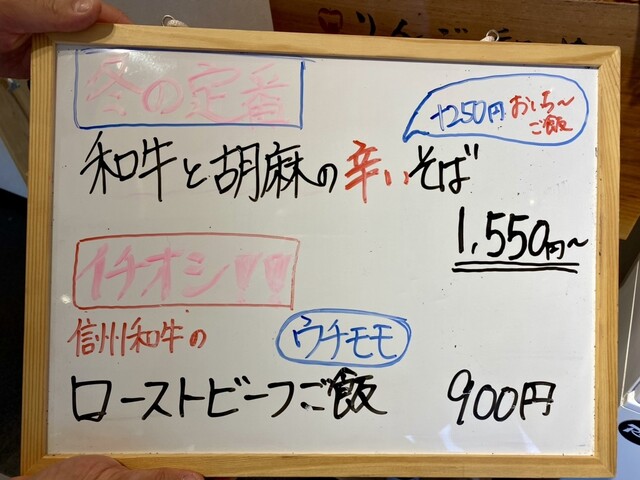 冬の定番
+250円 おいち〜
ご飯
和牛と胡麻の辛いそば
1,550円〜
イチオシ!!
信州和牛の
ウチモモ
ローストビーフご飯 900円